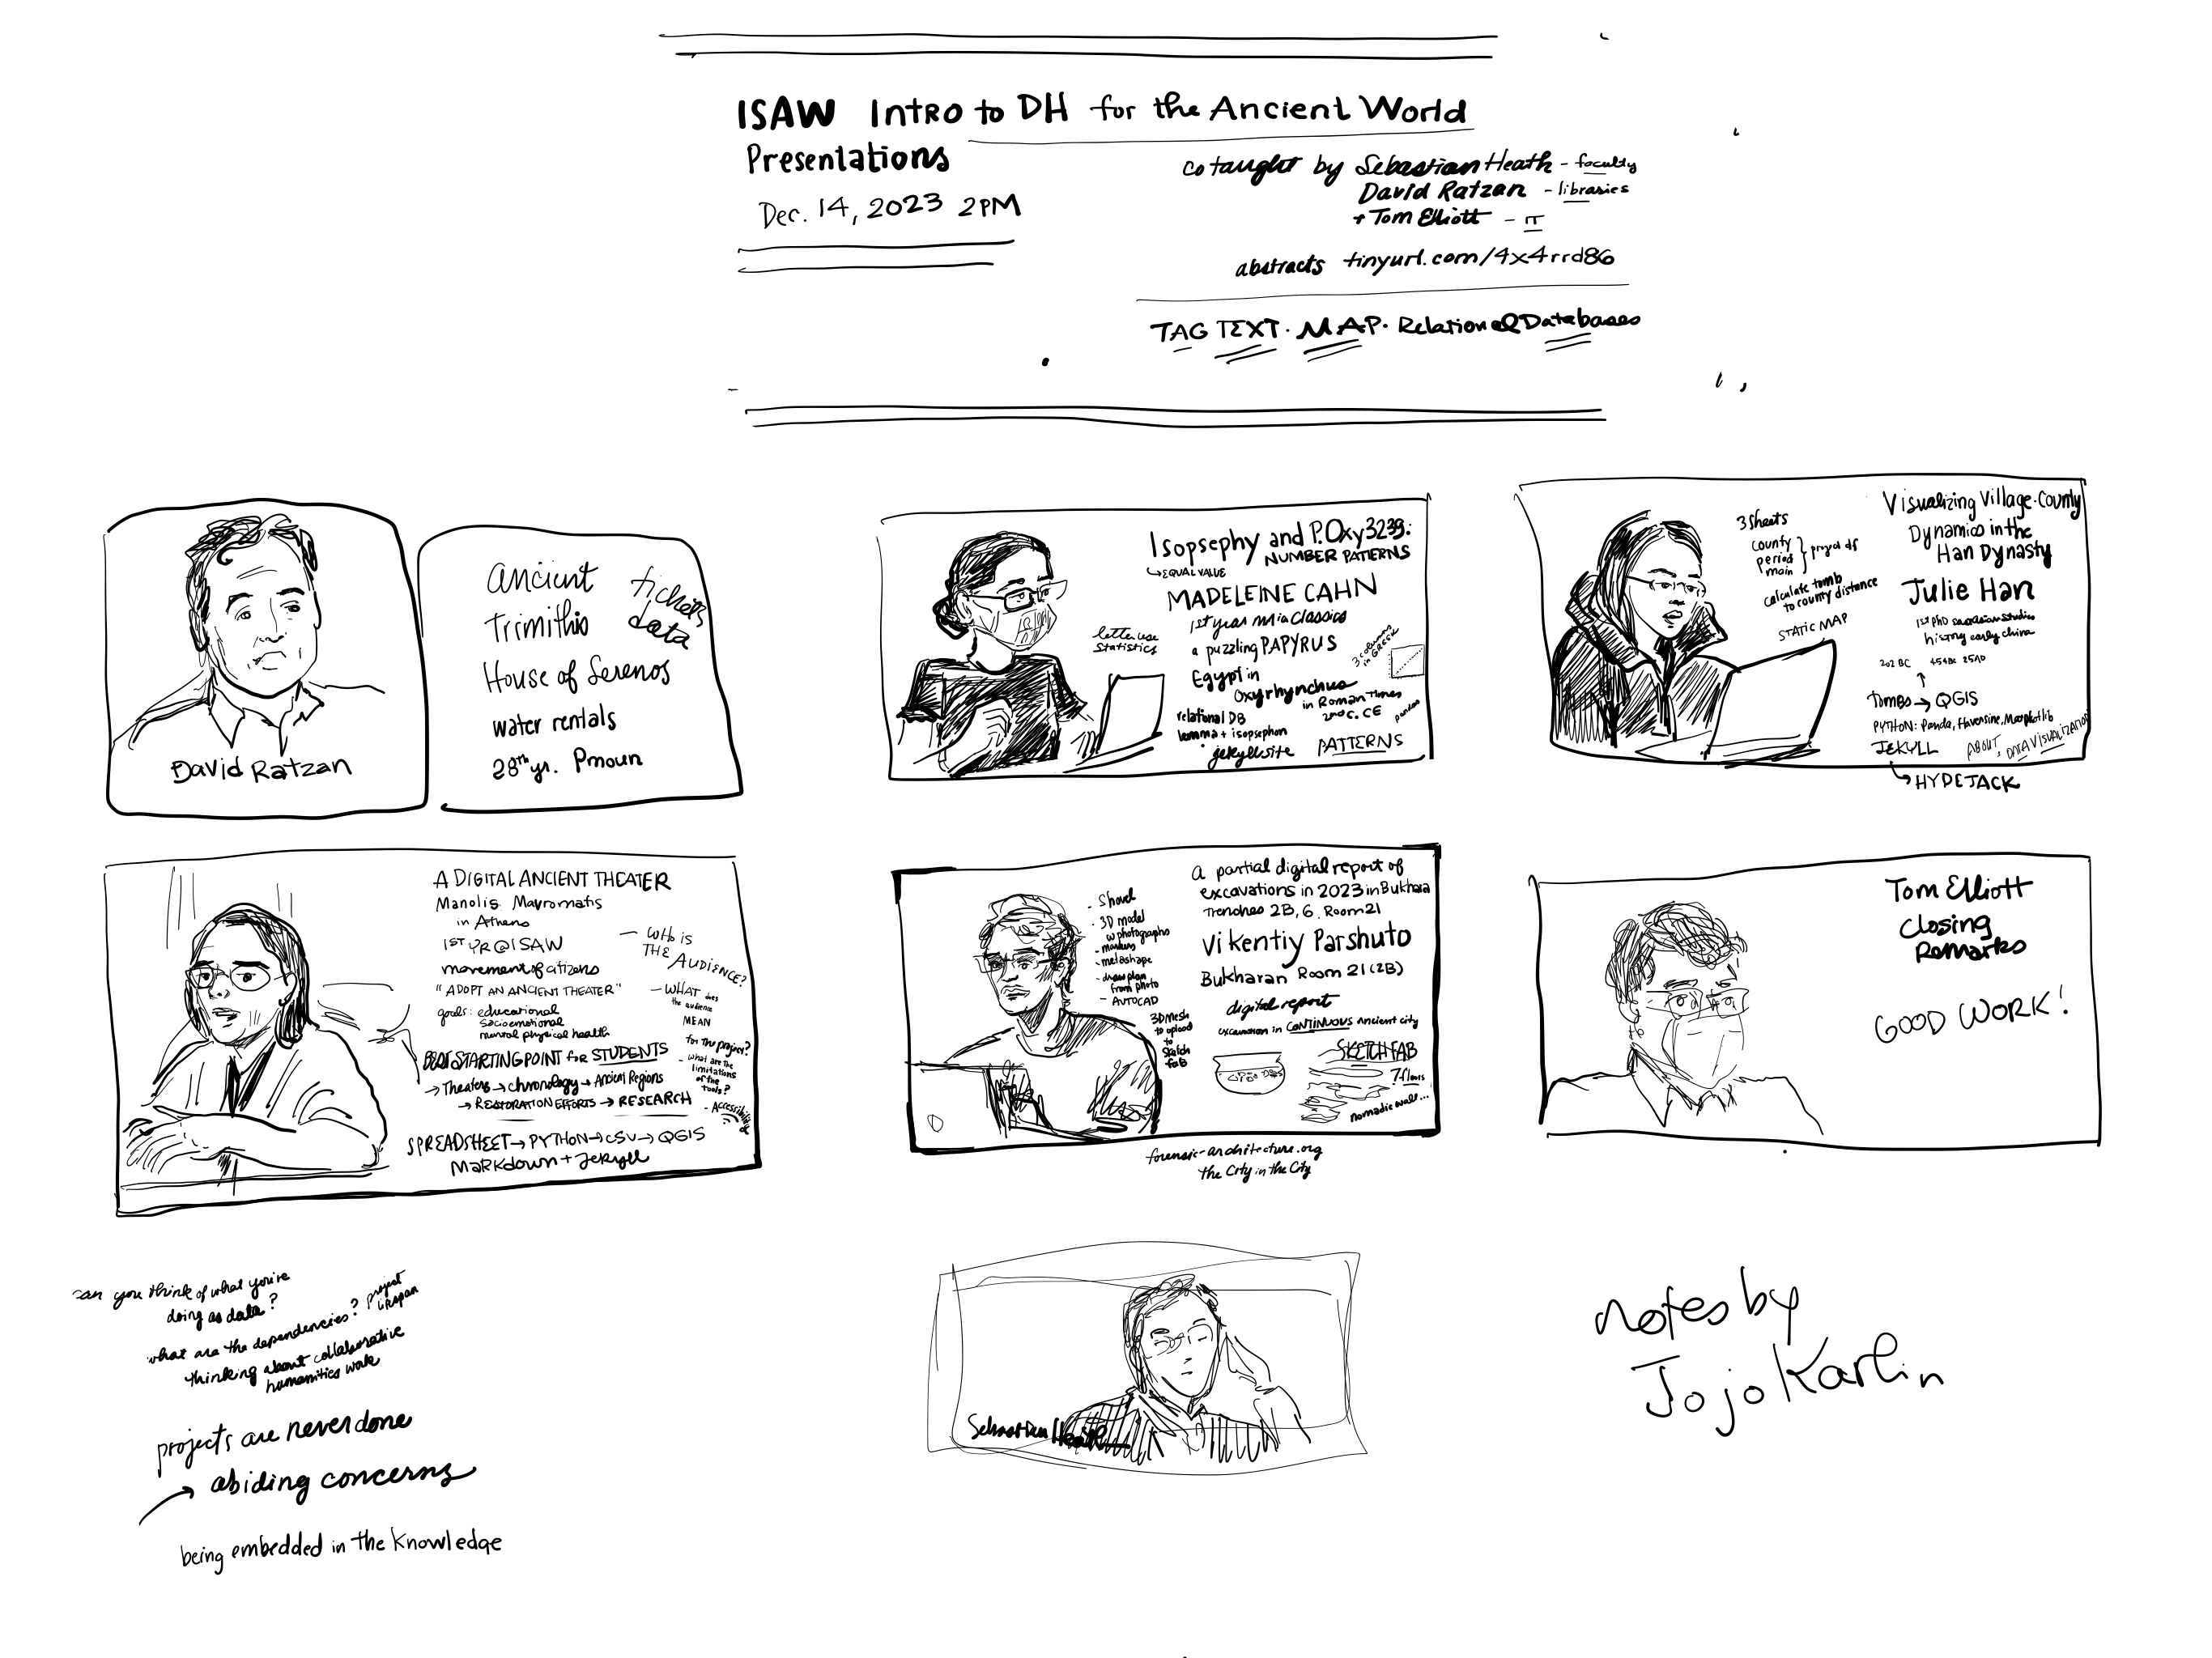 ISAW Intro to DH for the Ancient World
Presentations
Dec. 14, 2023 2PM
co taught by Sebastian Heath - faculty
David Ratzan - libraries
+ Tom Elliott - IT
abstracts tinyurl.com/4x4rrd86
TAG TEXT · MAP · Relational Databases
David Ratzan
ancient
Trimithis
House of Serenos
water rentals
28th yr. Pmoun
data
Isopsephy and P.Oxy 3239:
↳ EQUAL VALUE
NUMBER PATTERNS
MADELEINE CAHN
1st year MA in Classics
a puzzling PAPYRUS
Egypt in
Oxyrhynchus
in Roman Times
2nd C. CE
letter use
statistics
3 columns
in GREEK
relational DB
lemma + isopsephon
jekyll site
pandas
PATTERNS
Visualizing Village-County
Dynamics in the
Han Dynasty
Julie Han
1st PhD
history early china
3 sheets
county
period
main
} project df
calculate tomb
to county distance
STATIC MAP
202 BC
Tombs → QGIS
PYTHON: Panda, Haversine, Matplotlib
JEKYLL
ABOUT
DATA VISUALIZATION
↳ HYDEJACK
A DIGITAL ANCIENT THEATER
Manolis Mavromatis
in Athens
1ST YR @ ISAW
movement of citizens
"ADOPT AN ANCIENT THEATER"
goals: educational
socioemotional
mental physical health
STARTING POINT for STUDENTS
→ Theaters → chronology → Ancient Regions
→ RESTORATION EFFORTS → RESEARCH
SPREADSHEET → PYTHON → CSV → QGIS
Markdown + Jekyll
- WHO is
THE AUDIENCE?
- WHAT does
the audience
MEAN
for the project?
- what are the
limitations
of the
tools?
- Accessibility
a partial digital report of
excavations in 2023 in Bukhara
Trenches 2B, 6. Room 21
Vikentiy Parshuto
Bukharan Room 21 (2B)
digital report
excavation in CONTINUOUS ancient city
- Shovel
- 3D model
w photographs
- markers
- metashape
- draw plan
from photo
- AUTOCAD
3D mesh
to upload
to
sketch
fab
SKETCHFAB
7 floors
nomadic wall...
forensic-architecture.org
the City in the City
Tom Elliott
Closing
Remarks
GOOD WORK!
can you think of what you're
doing as data?
what are the dependencies?
project
lifespan
thinking about collaborative
humanities work
projects are never done
→ abiding concerns
being embedded in the knowledge
Sebastian Heath
notes by
Jojo Karlin